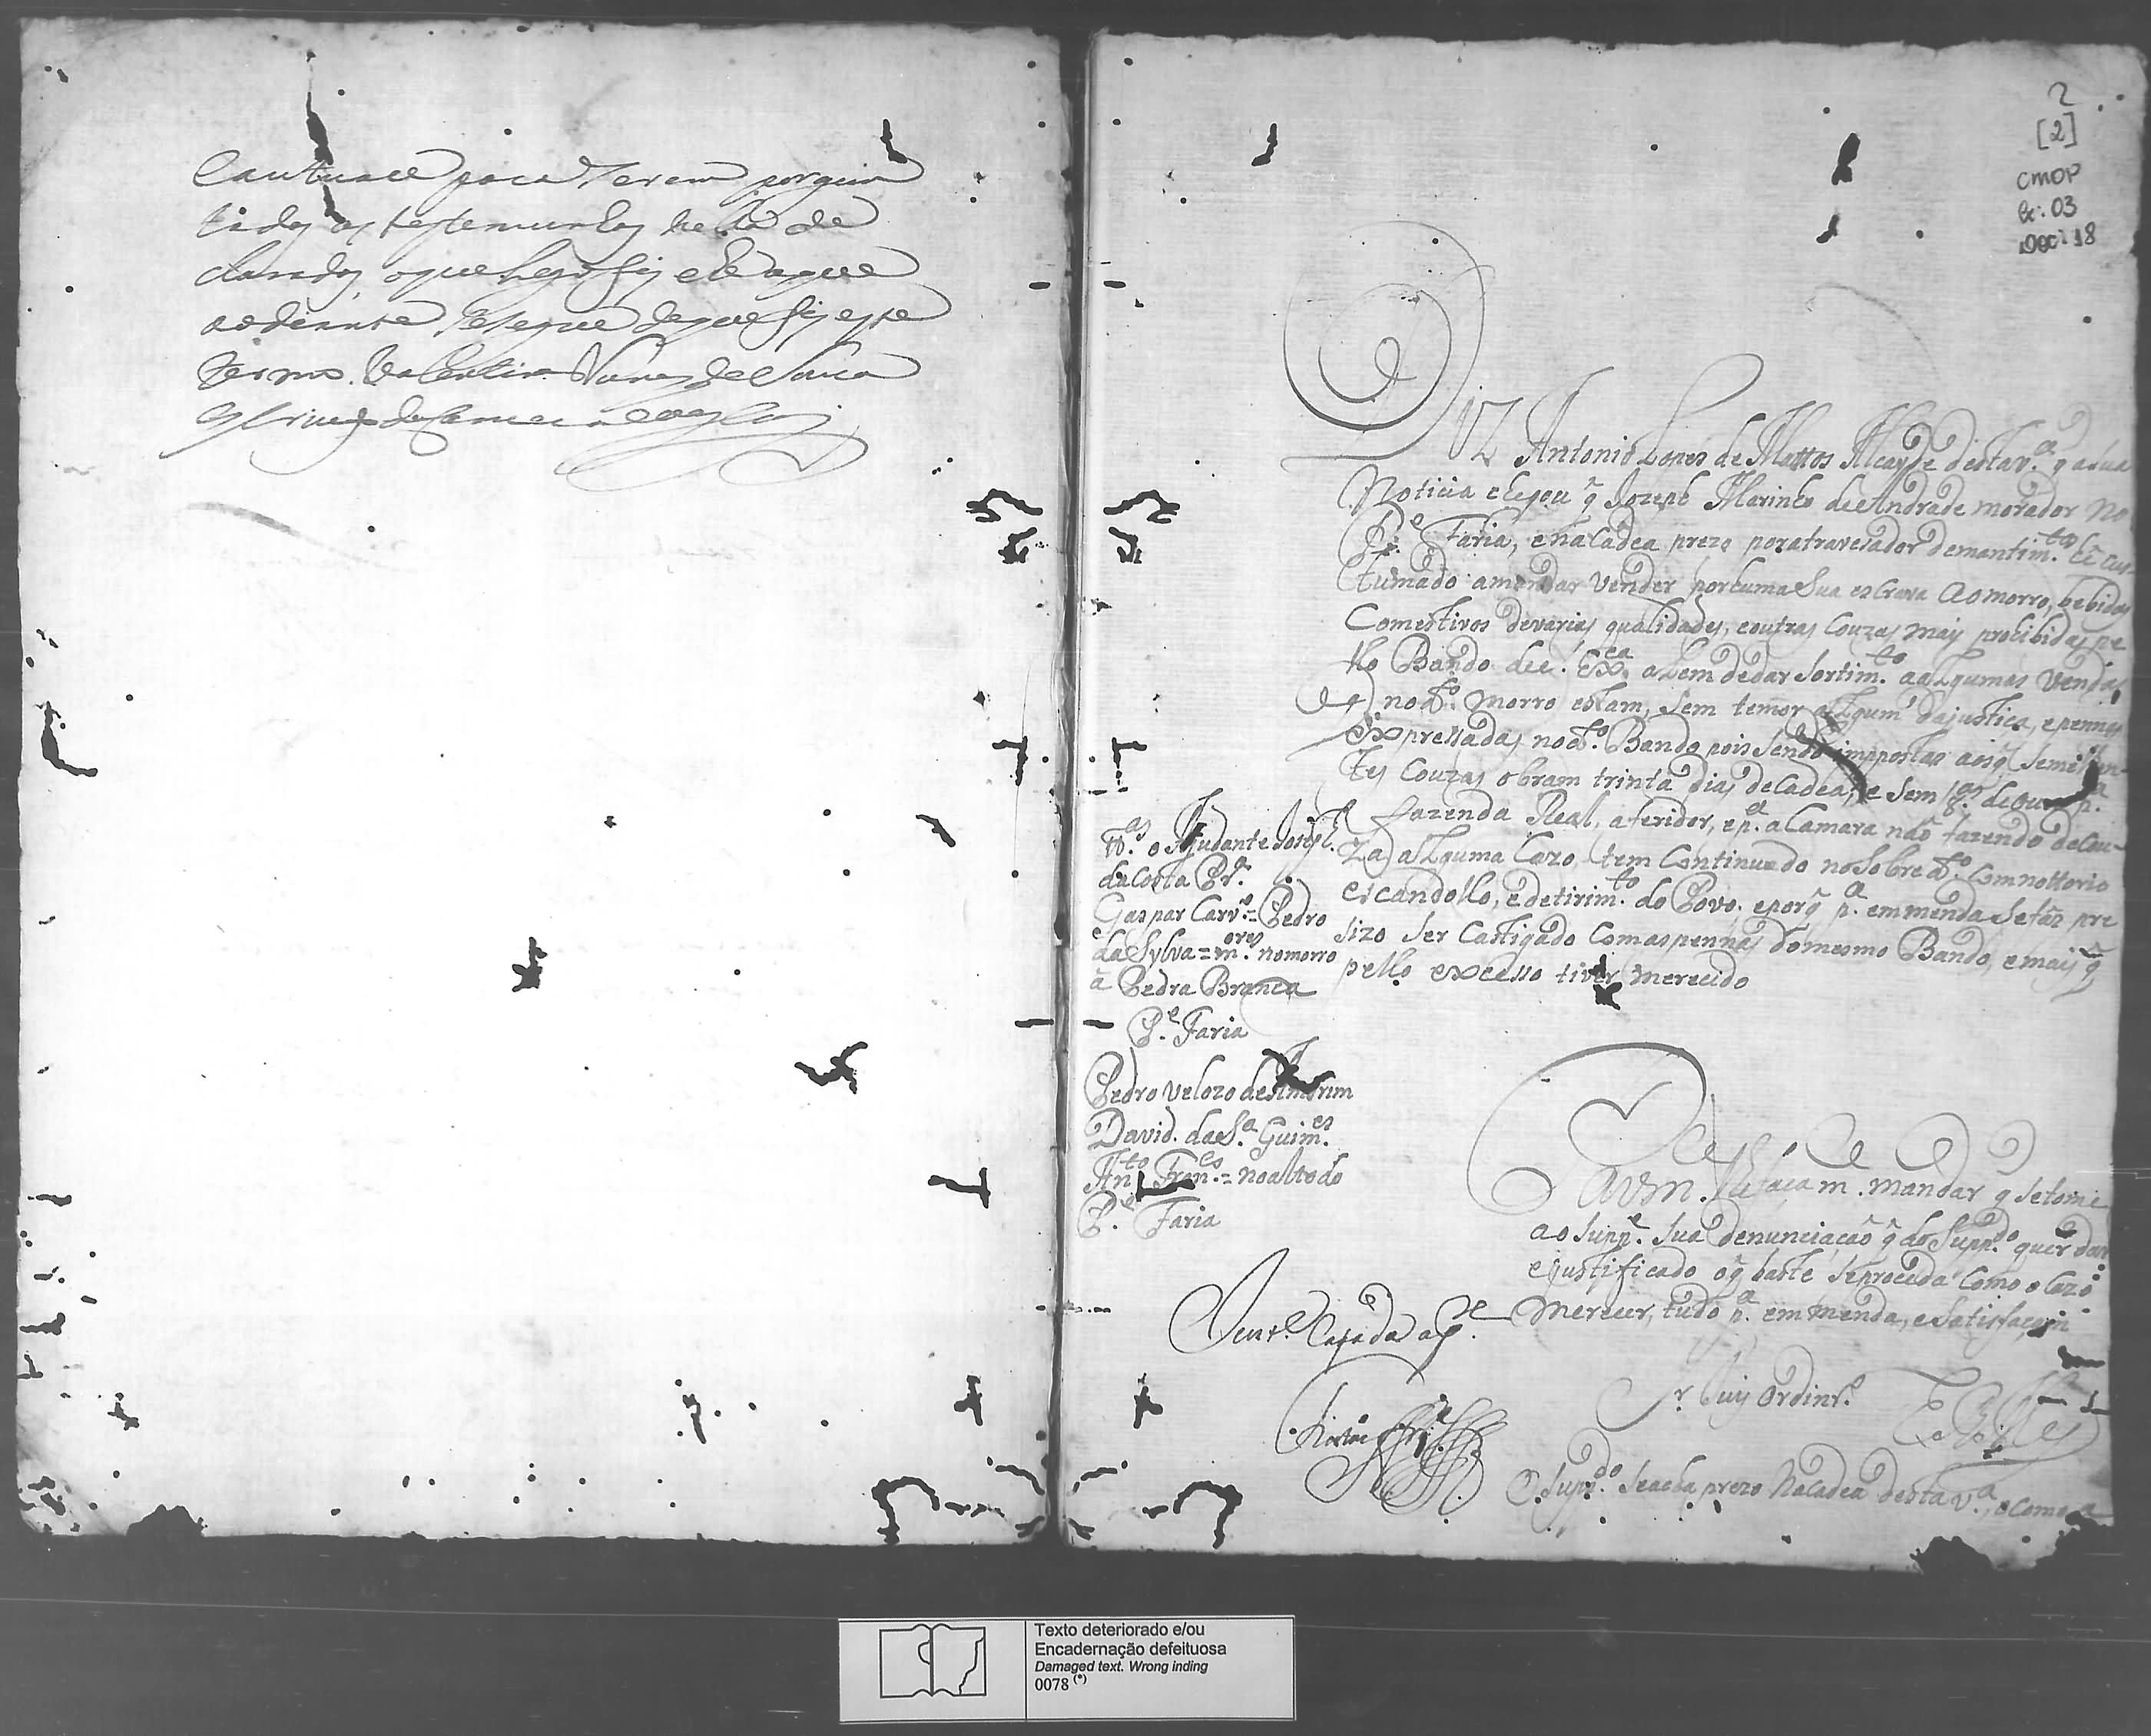 Cautuace para serem porgun
tidas as testemunhas nella de
claradas o que logo fis e he a que
ao diante se segue de que fis este
termo. Valentim Nunes de Souza
escrivão da Camera o escrevy
2
[2]
CMOP
Cx: 03
Doc: 18
Diz Antonio Lopes de Mattos Alcayde desta v.ª q̃ a sua
Noticia chegou q̃ Jozeph Marinho de Andrade morador no
P.e Faria, e na Cadea prezo por atravesador de mantim.tos hé cus-
tumado a mandar vender por huma Sua escrava ao morro, bebidas
Comestivos de varias qualidades, e outras Couzas mais prohibidas pe
llo Bando de S. Ex.ca alem de dar sortim.to a algumas vendas
q̃ no d.º morro estam, Sem temor algum da justiça, e pennas
expressadas no d.º Bando, pois Sendo impostas aos q̃ Semilhan-
tes Couzas obram trinta dias de Cadea, e Sem 8.as de ouro p.ª
fazenda Real, aferidor, e p.ª a Camara não fazendo de Cou-
za alguma Cazo, tem Continuado no Sobre d.º Com nottorio
escandollo, e detirim.to do Povo. e porq̃ p.ª emmenda Se faz pre
sizo Ser Castigado Com as pennas do mesmo Bando, e mais q̃
pello excesso tiver merecido
tt.as o Ajudante Joseph
da Costa Pr.ª
Gaspar Carv.º = Pedro
da Sylva = m.ores no morro
a Pedra Branca
P.e Faria
Pedro Velozo de Amorim
David da S.ª Guim.es
Ant.o Fran.co = no alto do
P.e Faria
P. a Vm. lhe faça m. mandar q̃ Se tome
ao Supp.e Sua denunciação q̃ do Supp.do quer dar
e justificado o q̃ baste Se proceda Como o Cazo
Merecer, tudo p.ª emmenda, e Satisfaçam
Sr. Juiz Ordinr.º
E R M.ce
O Supp.do Se acha prezo Na Cadea desta v.ª, e como a